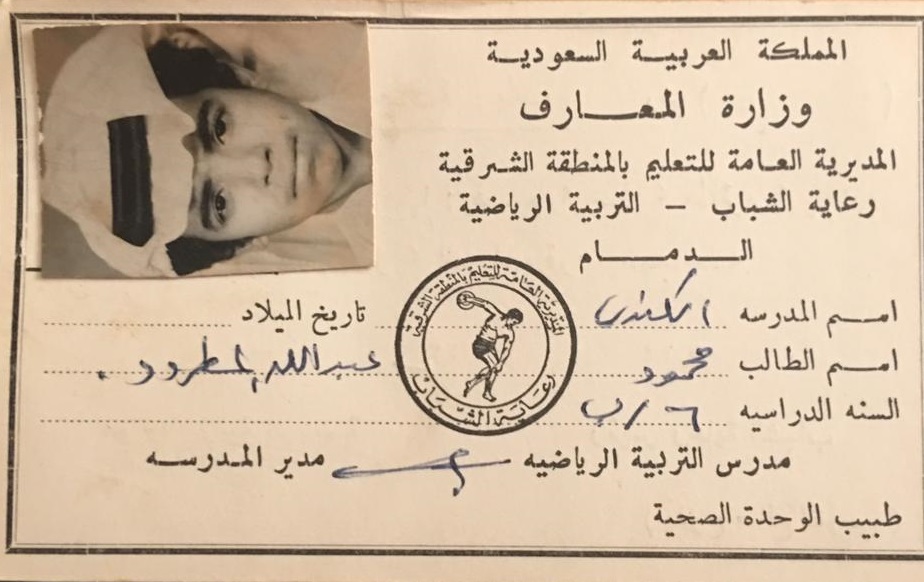 المملكة العربية السعودية
وزارة المعارف
المديرية العامة للتعليم بالمنطقة الشرقية
رعاية الشباب – التربية الرياضية
الدمام
اسم المدرسه الكندي تاريخ الميلاد
اسم الطالب محمود عبدالله المطرود .
السنه الدراسيه ٦/ب
مدرس التربية الرياضيه مدير المدرسه
طبيب الوحدة الصحية
المديرية العامة للتعليم بالمنطقة الشرقية
رعاية الشباب